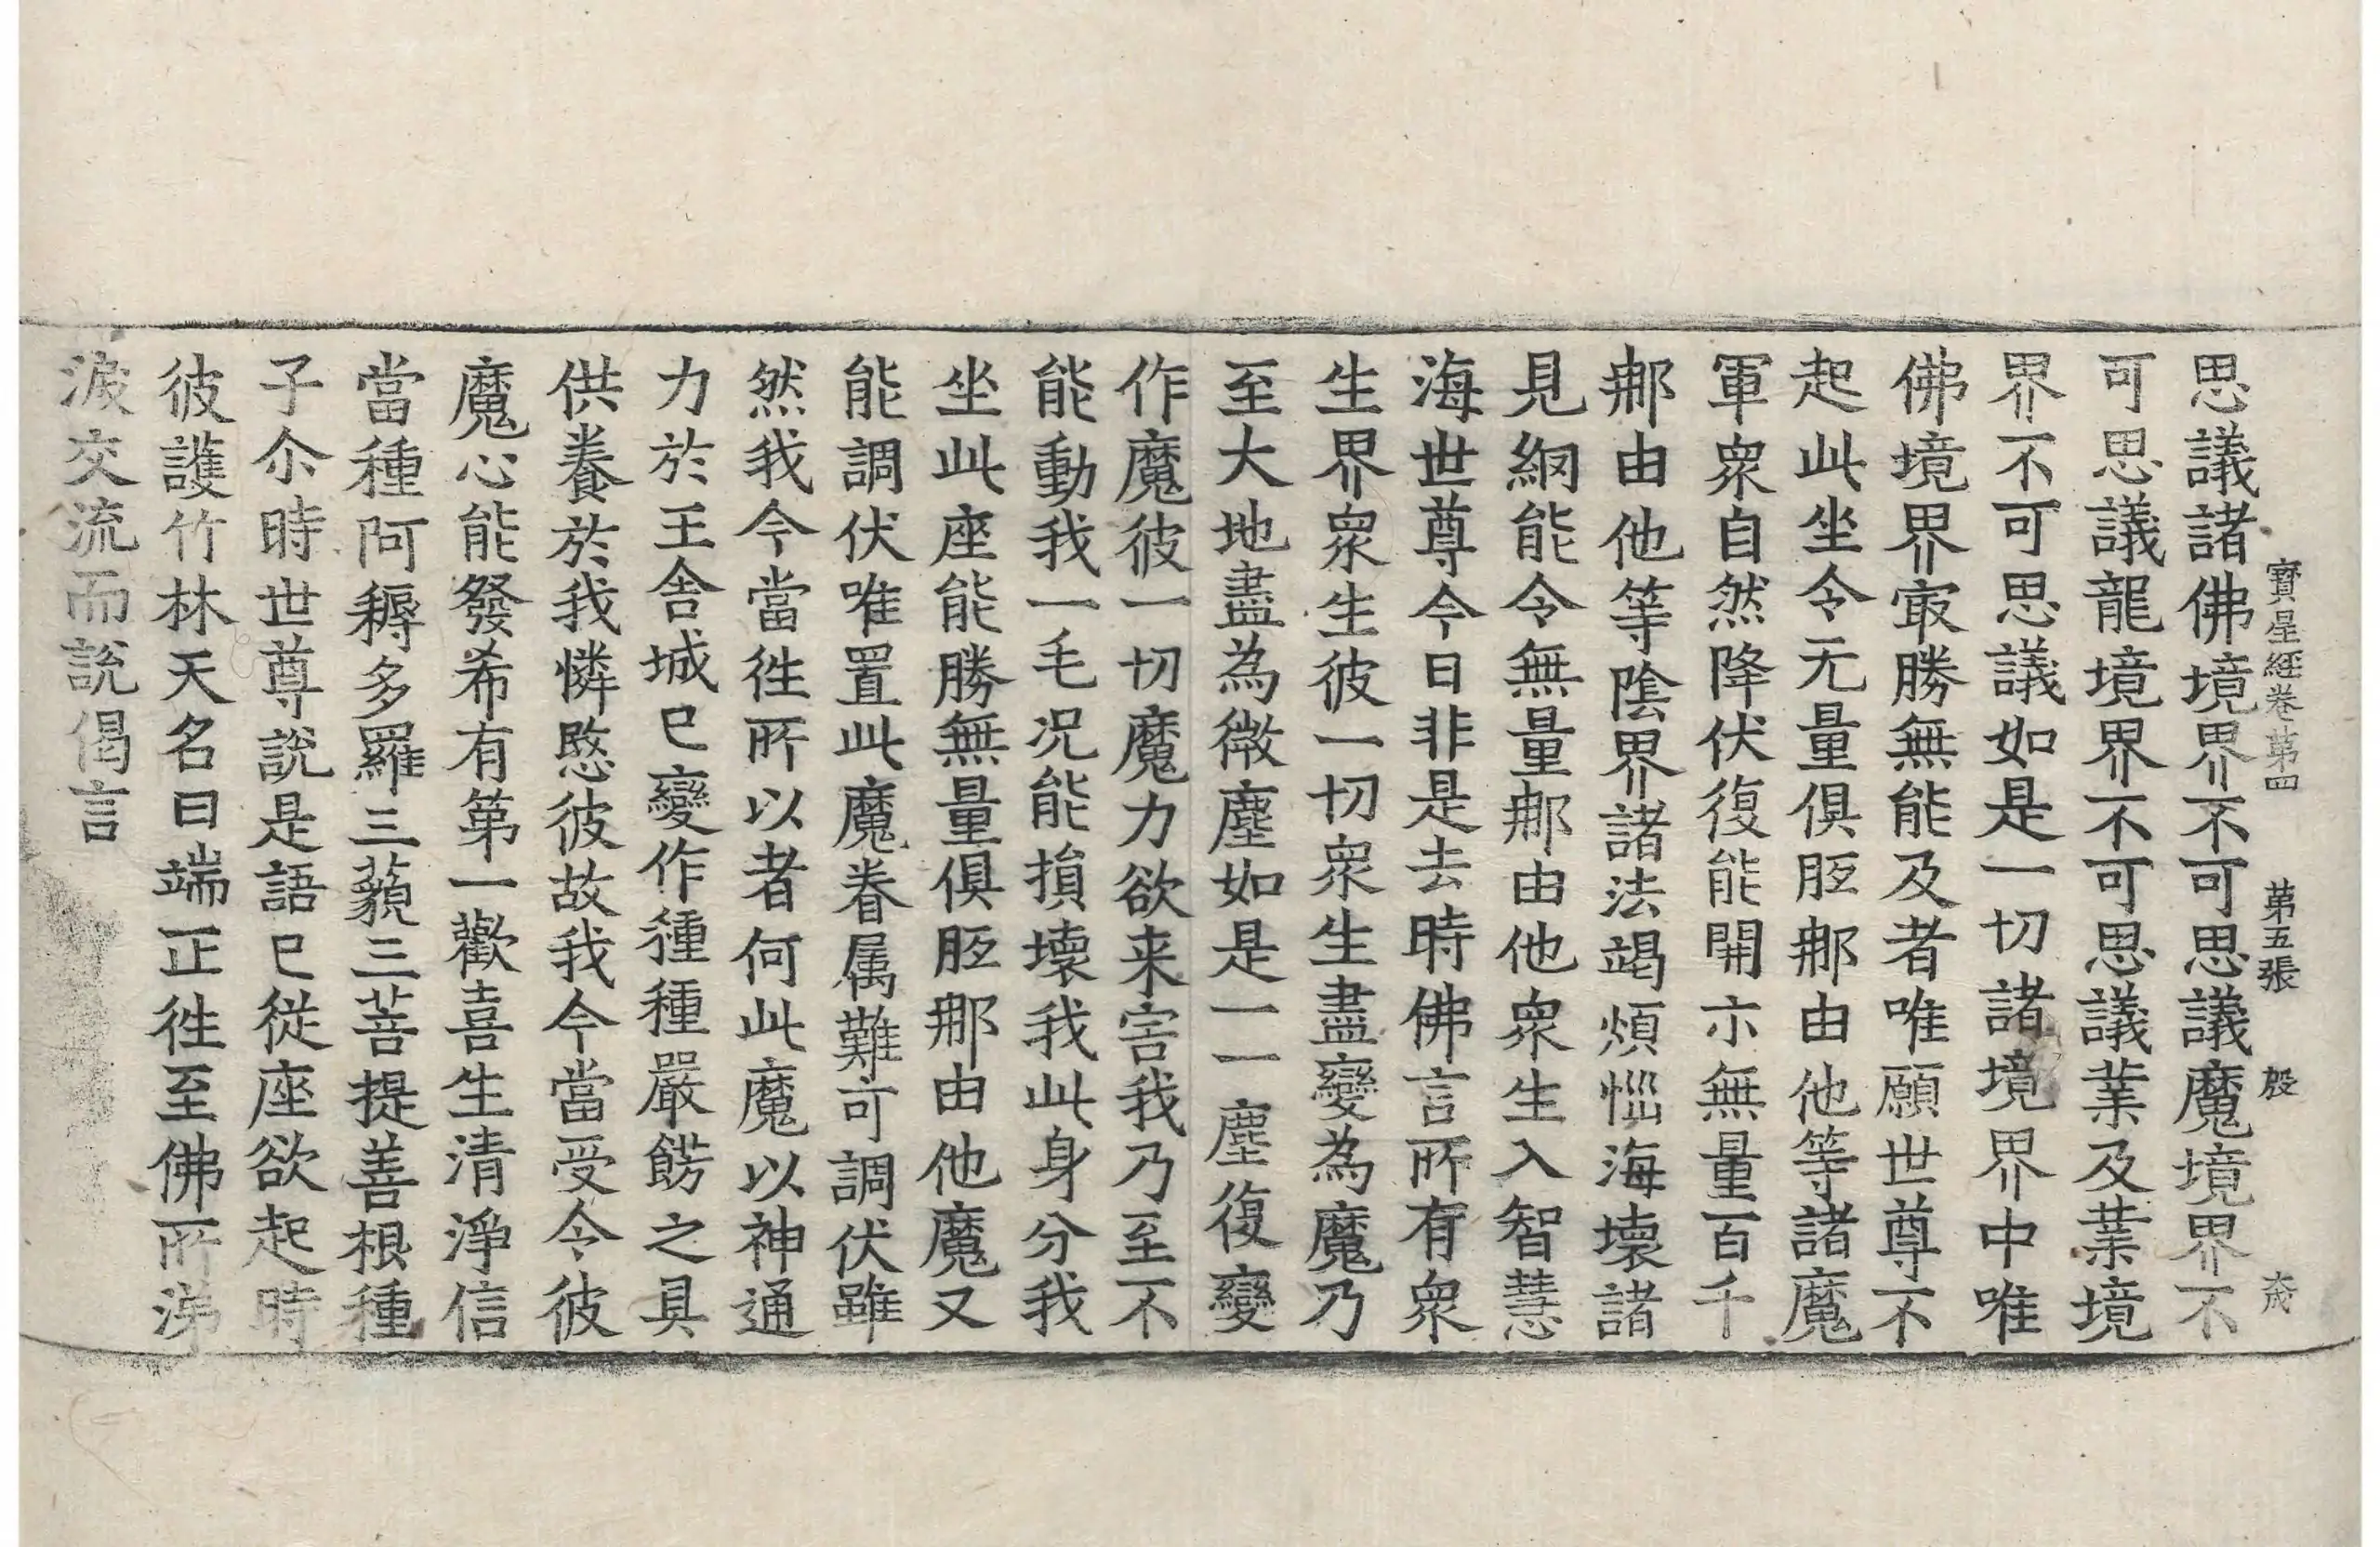 寳星經卷第四 第五張 殷 大茂
思議諸佛境界不可思議魔境界不
可思議龍境界不可思議業及業境
界不可思議如是一切諸境界中唯
佛境界㝡勝無能及者唯願世尊不
起此坐令无量俱胝那由他等諸魔
軍衆自然降伏復能開示無量百千
那由他等陰界諸法竭煩惱海壞諸
見網能令無量那由他衆生入智慧
海世尊今日非是去時佛言所有衆
生界衆生彼一切衆生盡變為魔乃
至大地盡為微塵如是一一塵復變
作魔彼一切魔力欲来害我乃至不
能動我一毛况能損壞我此身分我
坐此座能勝無量俱胝那由他魔又
能調伏唯置此魔眷属難可調伏雖
然我今當徃所以者何此魔以神通
力於王舍城已變作種種嚴餝之具
供養於我憐愍彼故我今當受令彼
魔心能發希有第一歡喜生清淨信
當種阿耨多羅三藐三菩提善根種
子尒時世尊說是語已從座欲起時
彼護竹林天名曰端正徃至佛所涕
淚交流而說偈言